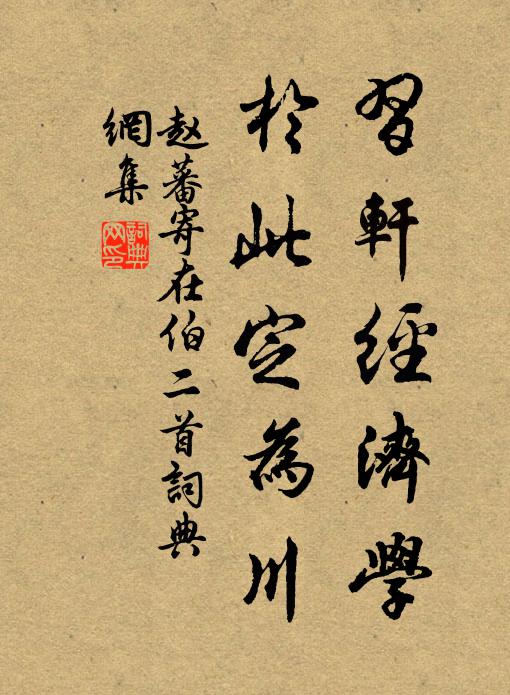 習軒經濟學
於此定為川
赵蕃寄在伯二首詞典
網集
詞典網印